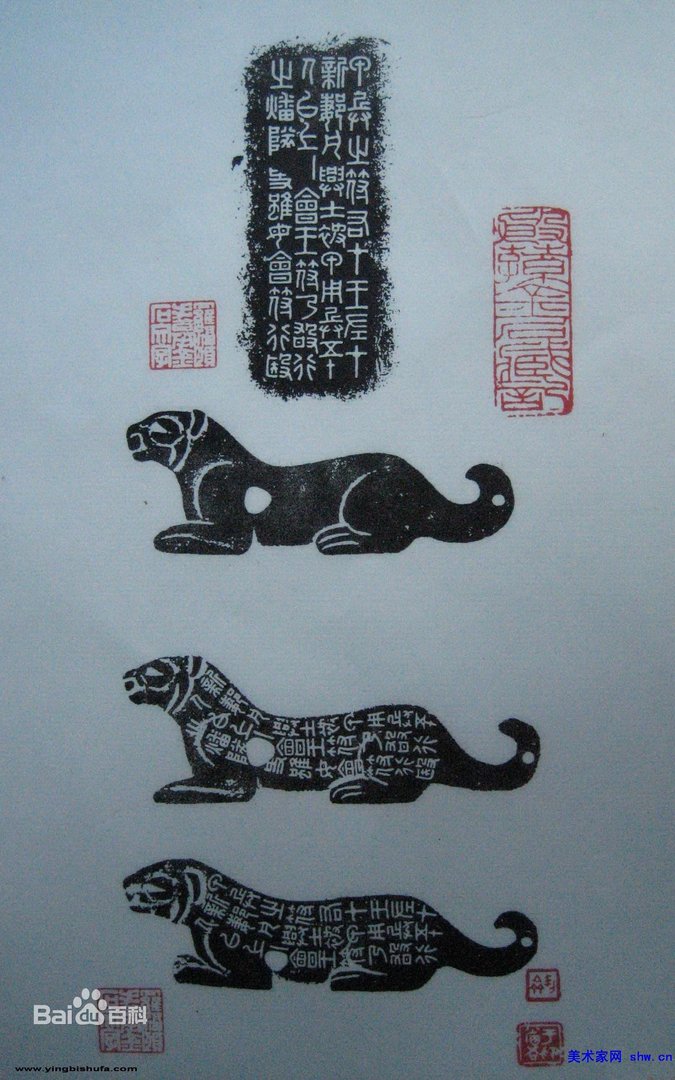 甲兵之符右才王左才
新郪凡興士被甲用兵五十
人以上會王符乃敢行
之燔隊事雖毋會符行殹
新郪凡興士被甲用兵五十
人以上會王符乃敢行
之燔隊事雖毋會符行殹
甲兵之符右才王左才
新郪凡興士被甲用兵五十
人以上會王符乃敢行
Baidu百科
www.yingbishufa.com
美术家网 shw.cn